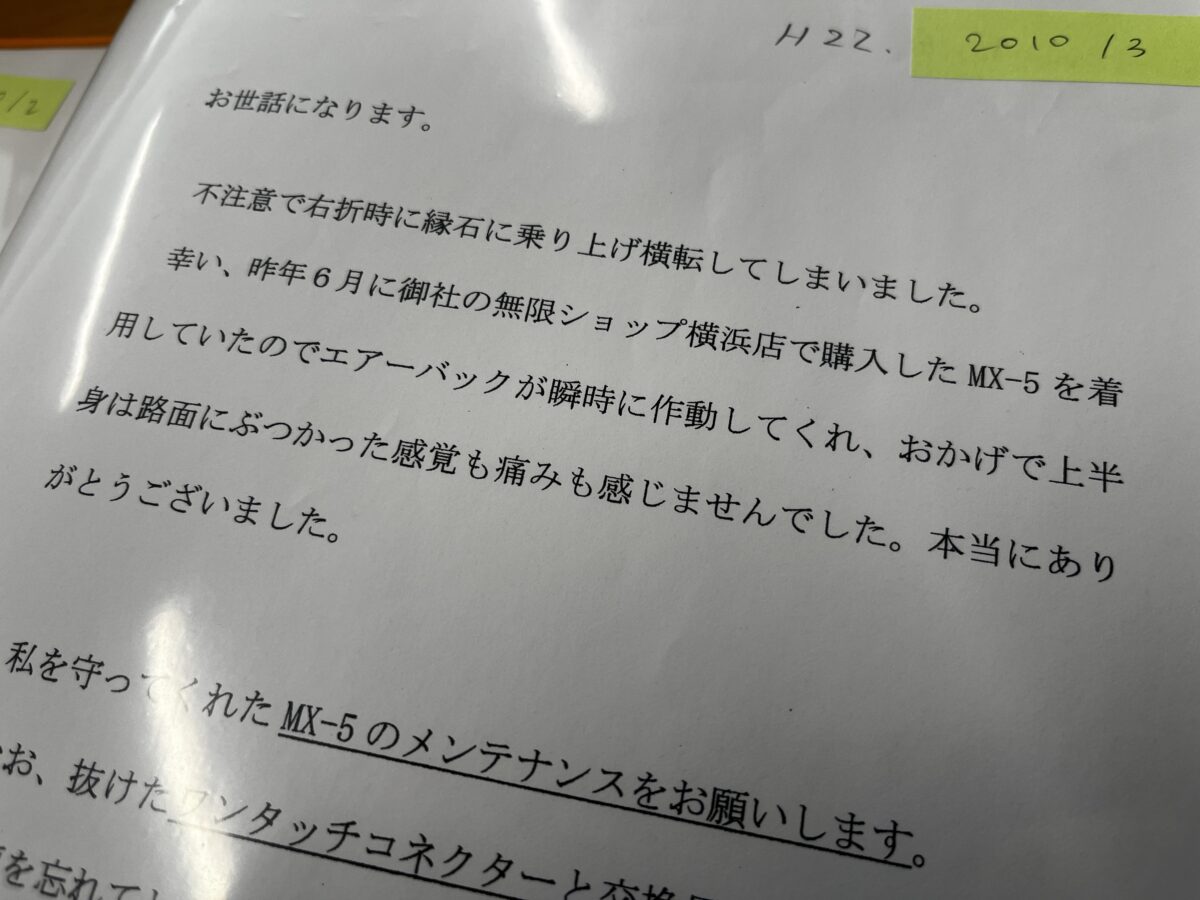 H22.
2010 /3
/2
お世話になります。
不注意で右折時に縁石に乗り上げ横転してしまいました。
幸い、昨年6月に御社の無限ショップ横浜店で購入したMX-5を着
用していたのでエアーバックが瞬時に作動してくれ、おかげで上半
身は路面にぶつかった感覚も痛みも感じませんでした。本当にあり
がとうございました。
私を守ってくれたMX-5のメンテナンスをお願いします。
お、抜けたワンタッチコネクターと交換
を忘れて